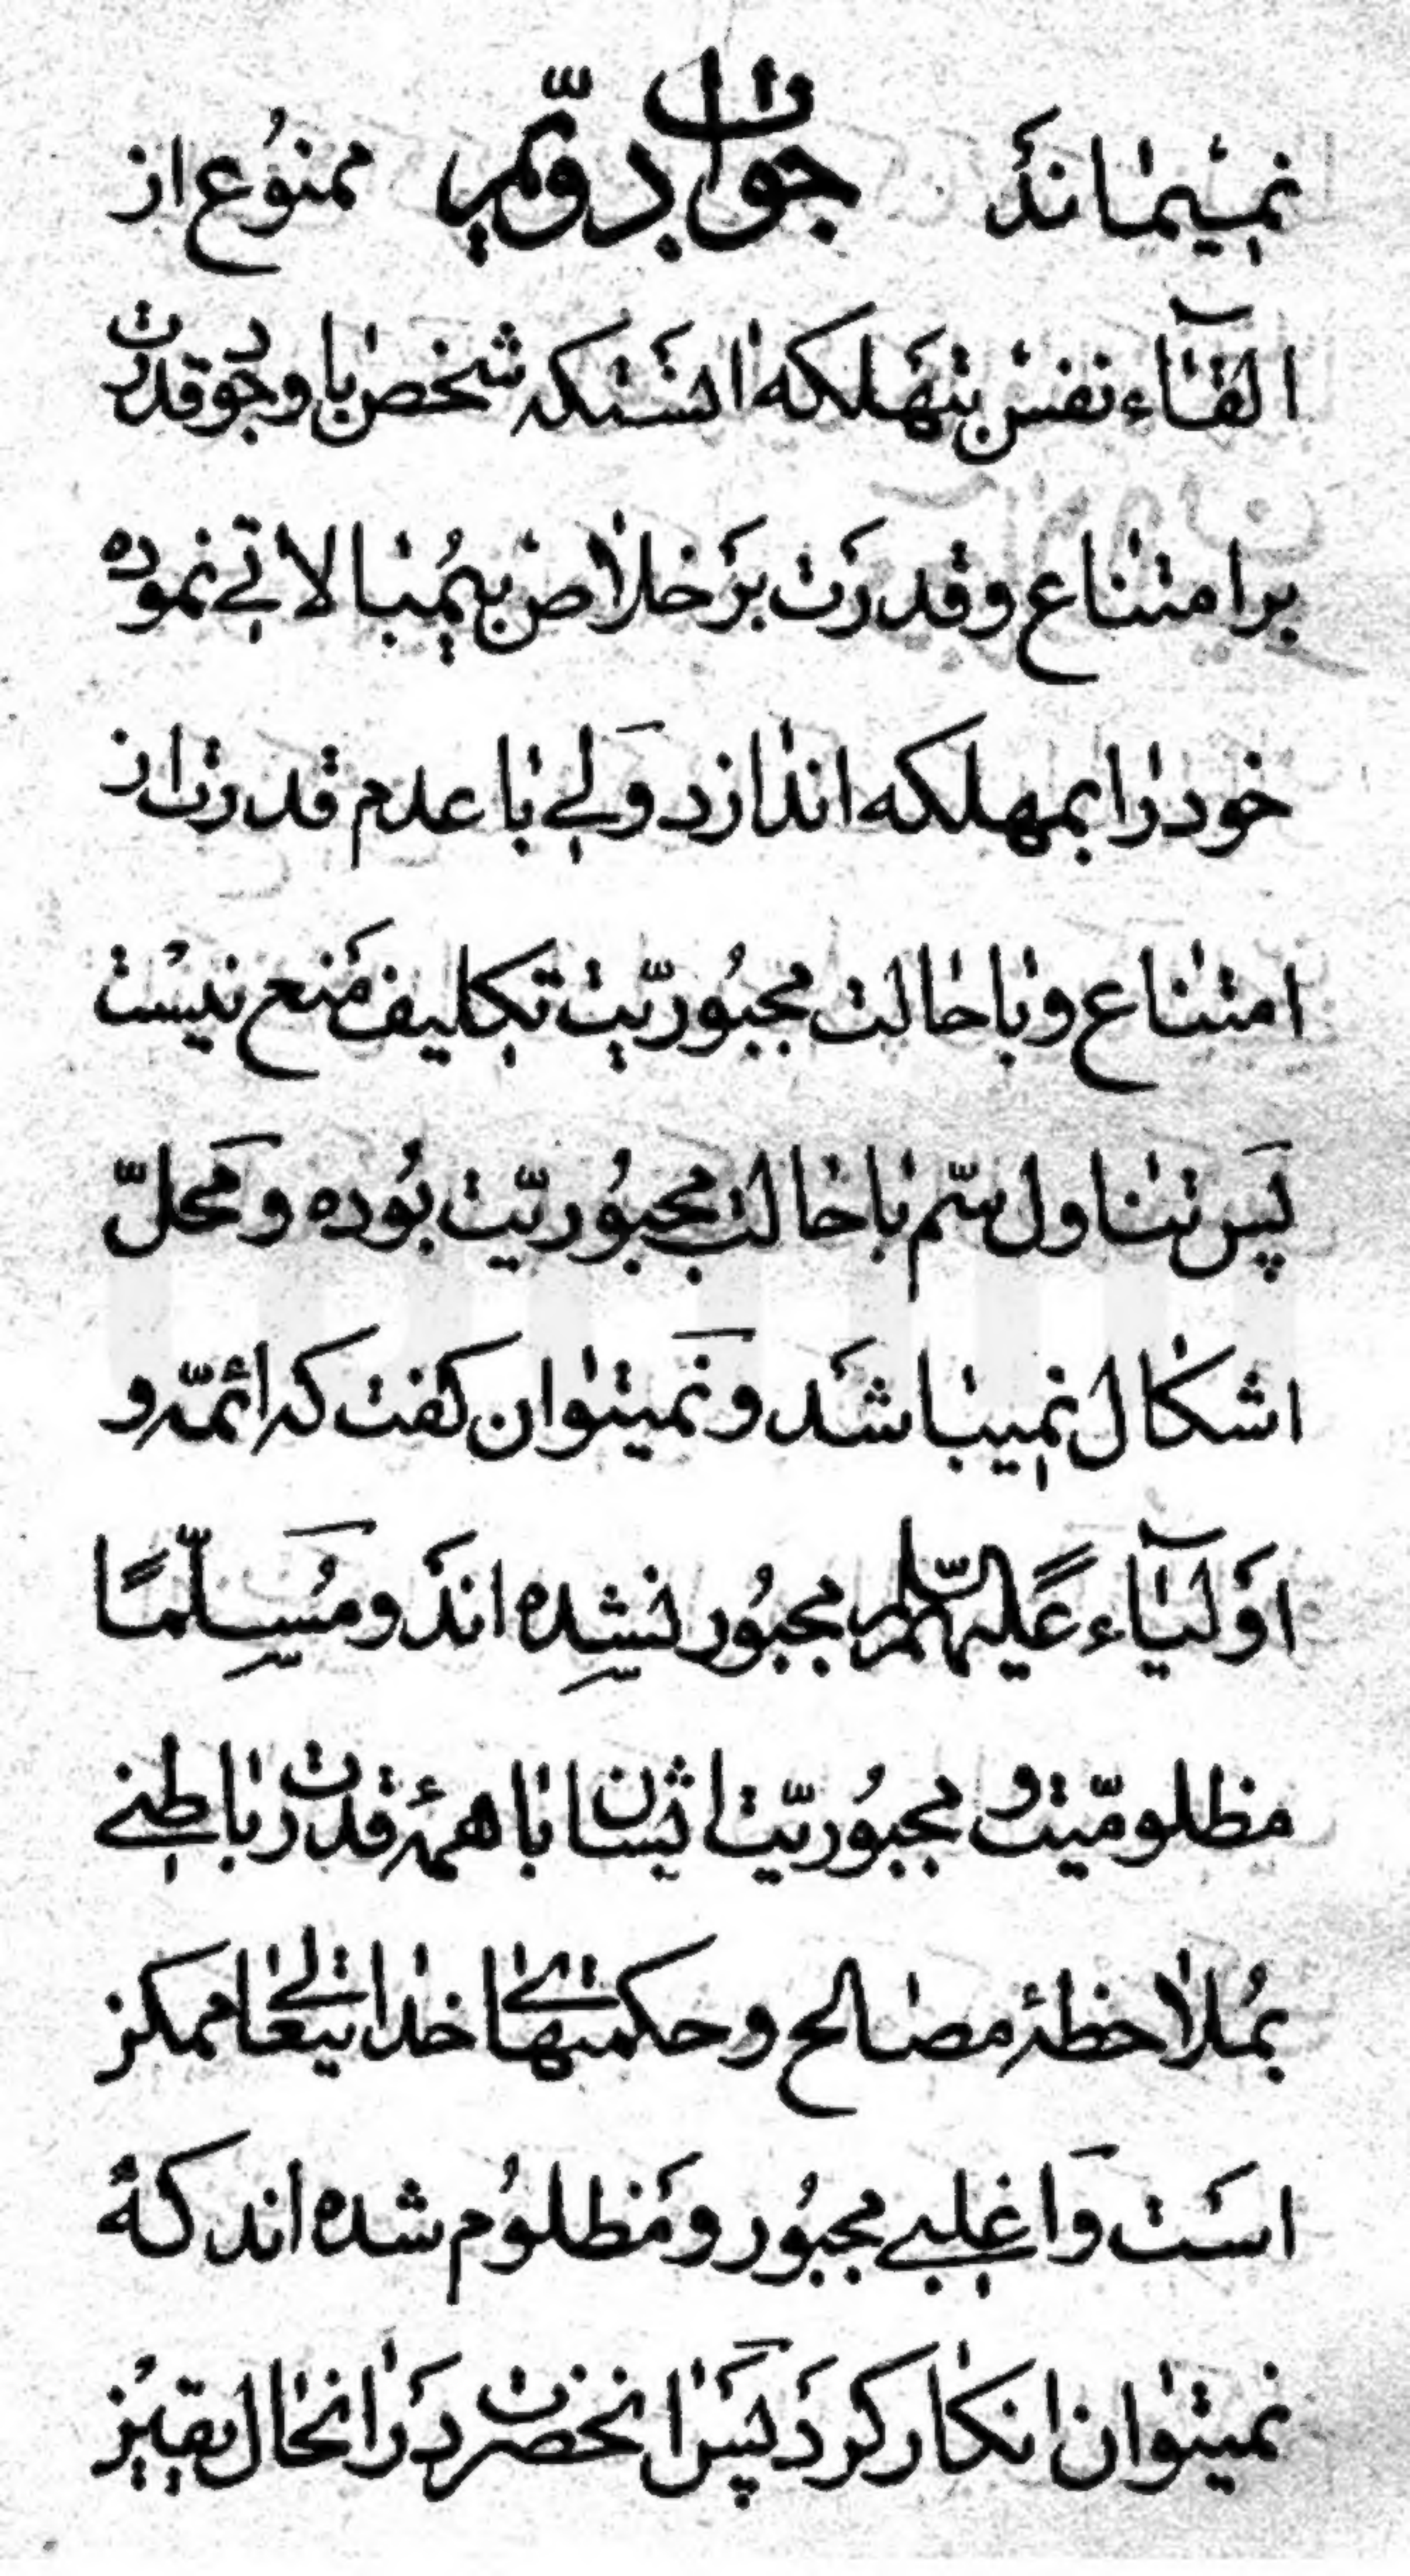 نمیماند جواب دویّم ممنوع از
القآء نفس بتهلکه اینستکه شخص با وجود قدرت
بر امتناع و قدرت بر خلاص بیمبالاتی نموده
خود را بمهلکه اندازد ولی با عدم قدرت از
امتناع و با حالت مجبوریّت تکلیف منع نیست
پس تناول سّم با حالت مجبوریّت بوده و محلّ
اشکال نمیباشد و نمیتوان کفت که ائمّه و
اولیآء علیهم السّلام مجبور نشده اند و مسلّمًا
مظلومیّت و مجبوریّت ایشان با همهٔ قدرت باطنی
بملاحظهٔ مصالح و حکمتهای خدایتعالی ممکن
است و اغلبی مجبور و مظلوم شده اند که
نمیتوان انکار کرد پس انحضرت در انحال یقین